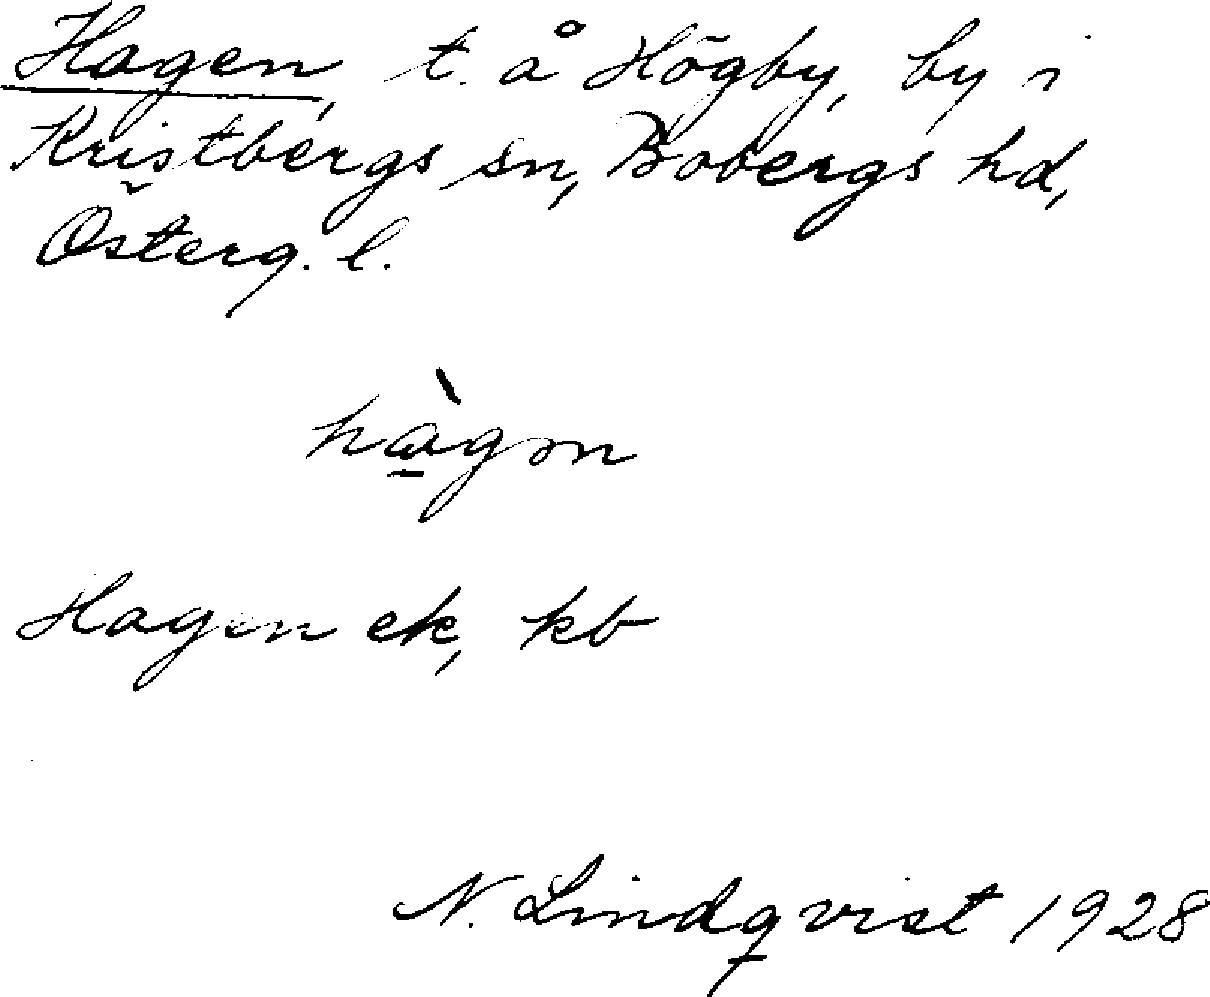 Hagen, t. å Högby, by i
Kristbergs sn, Bobergs hd,
Österg. l.
hàgən
Hagen ek, kb
N. Lindqvist 1928